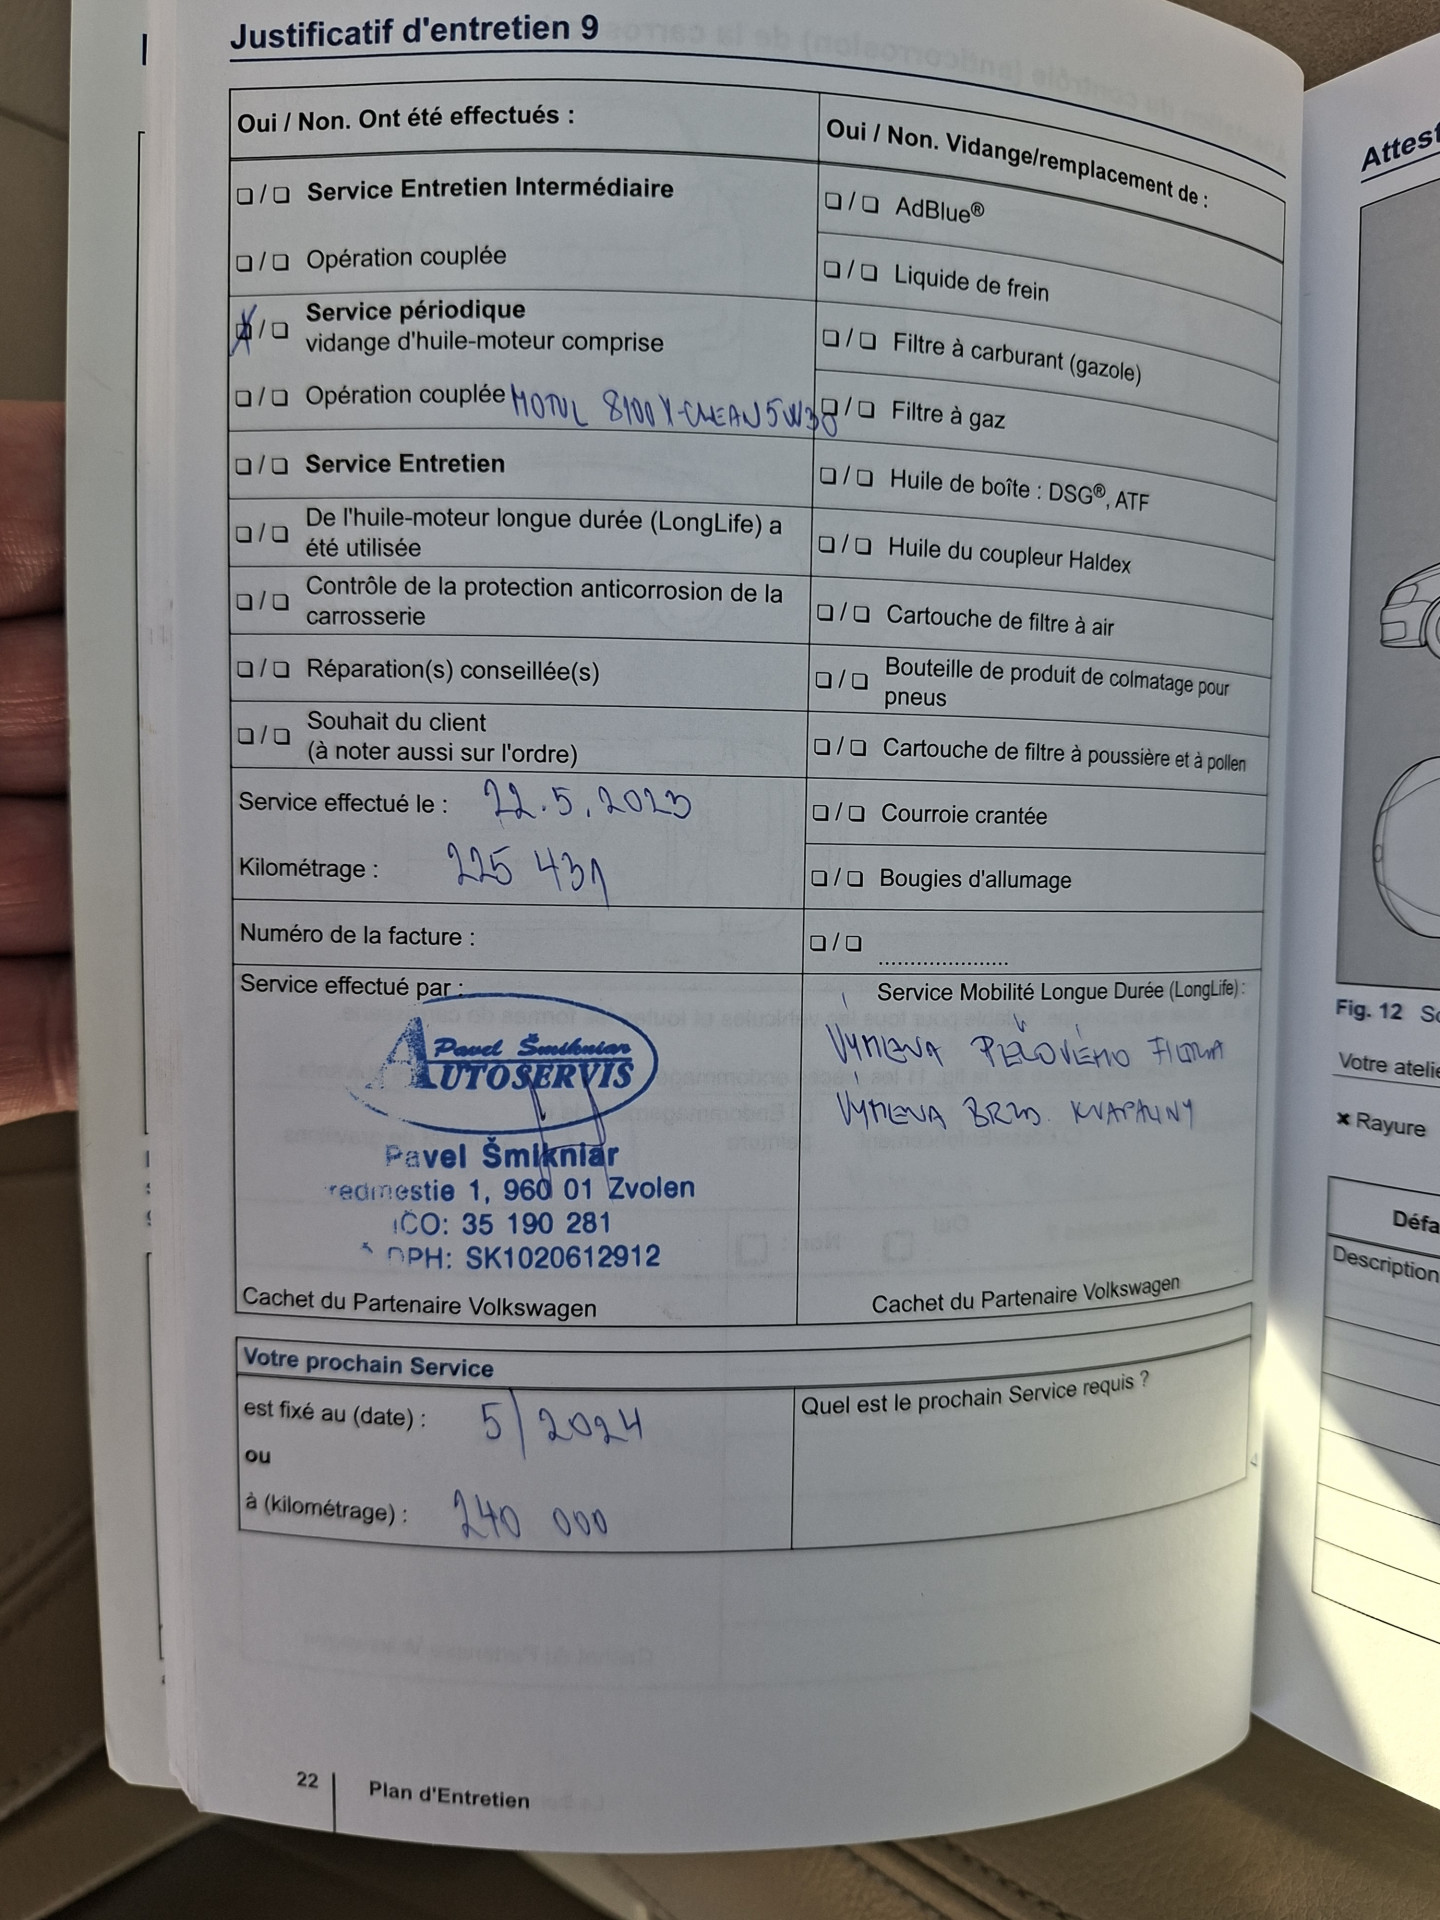 Justificatif d'entretien 9
Oui / Non. Ont été effectués :
❏ / ❏ Service Entretien Intermédiaire
❏ / ❏ Opération couplée
❏ / ❏ Service périodique
vidange d'huile-moteur comprise
❏ / ❏ Opération couplée MOTUL 8100 X-CLEAN 5W30
❏ / ❏ Service Entretien
❏ / ❏ De l'huile-moteur longue durée (LongLife) a
été utilisée
❏ / ❏ Contrôle de la protection anticorrosion de la
carrosserie
❏ / ❏ Réparation(s) conseillée(s)
❏ / ❏ Souhait du client
(à noter aussi sur l'ordre)
Service effectué le : 22.5.2023
Kilométrage : 225 431
Numéro de la facture :
Service effectué par :
Pavel Šmikniar
AUTOSERVIS
Pavel Šmikniar
redmestie 1, 960 01 Zvolen
IČO: 35 190 281
DPH: SK1020612912
Cachet du Partenaire Volkswagen
Oui / Non. Vidange/remplacement de :
❏ / ❏ AdBlue®
❏ / ❏ Liquide de frein
❏ / ❏ Filtre à carburant (gazole)
❏ / ❏ Filtre à gaz
❏ / ❏ Huile de boîte : DSG®, ATF
❏ / ❏ Huile du coupleur Haldex
❏ / ❏ Cartouche de filtre à air
❏ / ❏ Bouteille de produit de colmatage pour
pneus
❏ / ❏ Cartouche de filtre à poussière et à pollen
❏ / ❏ Courroie crantée
❏ / ❏ Bougies d'allumage
❏ / ❏ .....................
Service Mobilité Longue Durée (LongLife) :
VÝMENA PEĽOVÉHO FILTRA
VÝMENA BRZD. KVAPALINY
Cachet du Partenaire Volkswagen
Votre prochain Service
est fixé au (date) : 5/2024
ou
à (kilométrage) : 240 000
Quel est le prochain Service requis ?
22 Plan d'Entretien
Attest
Fig. 12 Sc
Votre atelie
✖ Rayure
Défa
Description